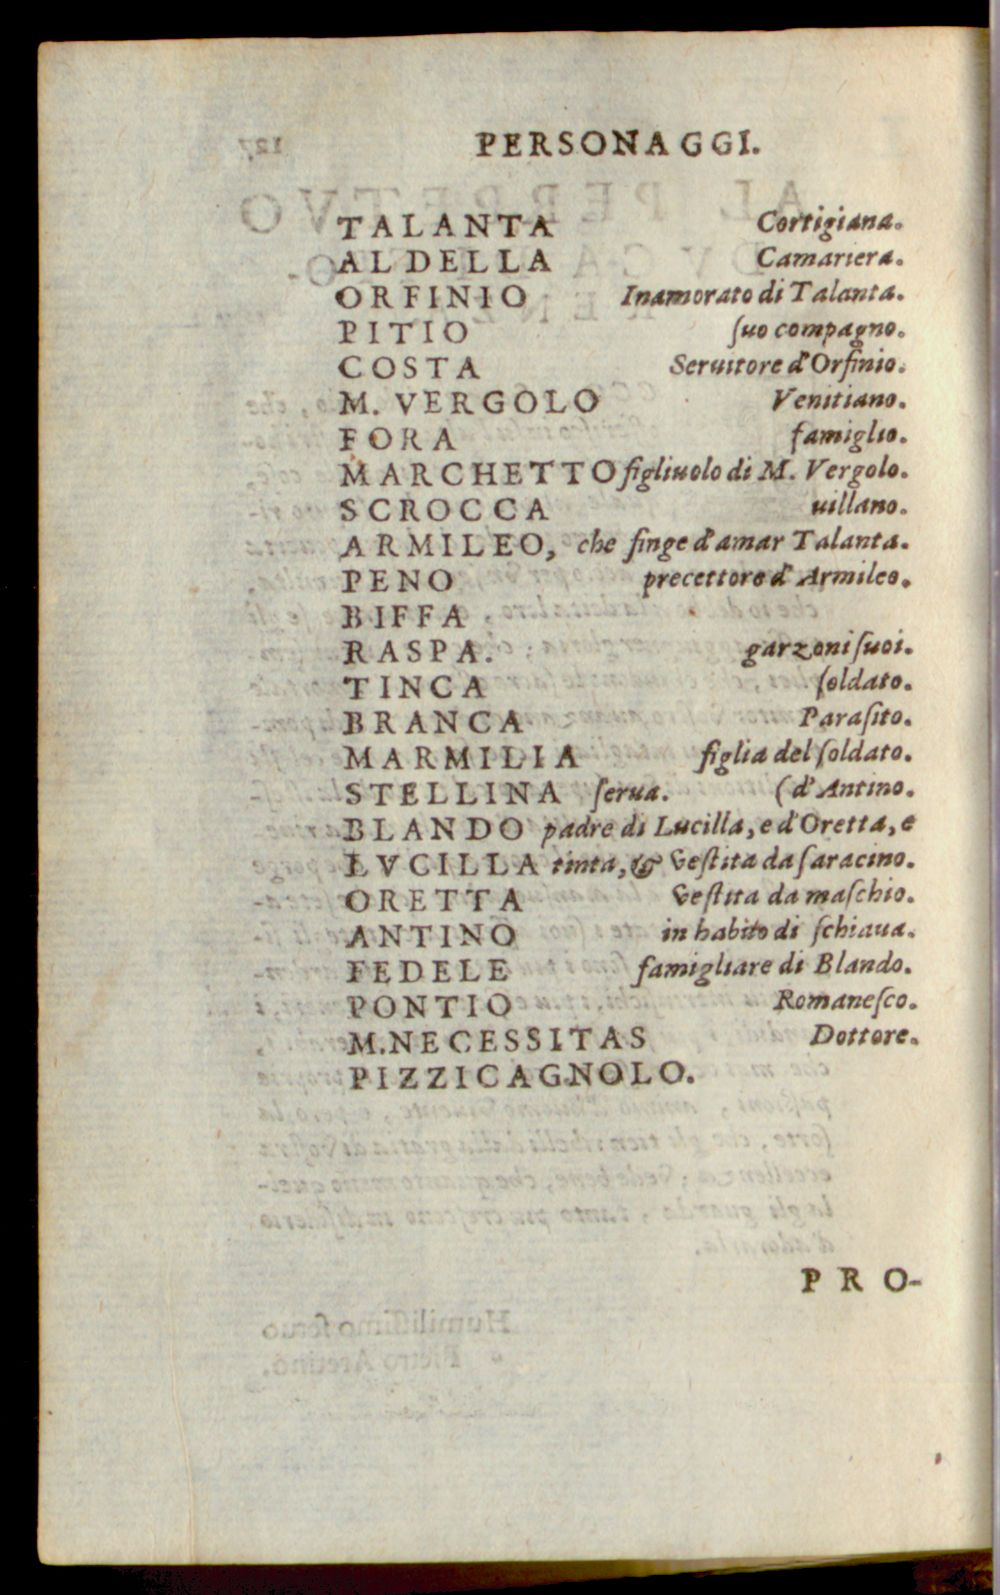 PERSONAGGI.
TALANTA Cortigiana.
ALDELLA Camariera.
ORFINIO Inamorato di Talanta.
PITIO ſuo compagno.
COSTA Seruitore d'Orfinio.
M. VERGOLO Venitiano.
FORA famiglio.
MARCHETTO figliuolo di M. Vergolo.
SCROCCA uillano.
ARMILEO, che finge d'amar Talanta.
PENO precettore d'Armileo.
BIFFA
RASPA. garzoni ſuoi.
TINCA ſoldato.
BRANCA Paraſito.
MARMILIA figlia del ſoldato.
STELLINA ſerua. (d'Antino.
BLANDO padre di Lucilla, e d'Oretta, e
LVCILLA tinta, & veſtita da ſaracino.
ORETTA veſtita da maſchio.
ANTINO in habito di ſchiaua.
FEDELE famigliare di Blando.
PONTIO Romaneſco.
M.NECESSITAS Dottore.
PIZZICAGNOLO.
PRO-